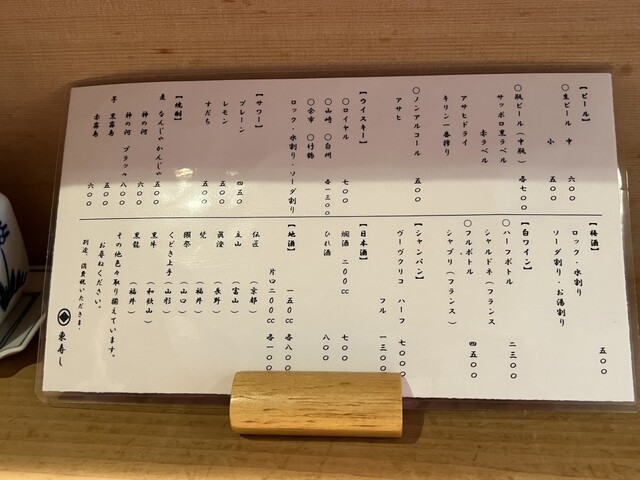 【ビール】
○生ビール 中 六〇〇
小 五〇〇
○瓶ビール(中瓶) 各七〇〇
サッポロ黒ラベル
赤ラベル
アサヒドライ
キリン一番搾り
○ノンアルコール 五〇〇
アサヒ
【ウイスキー】
○ロイヤル 七〇〇
○山崎 ○白州 各一三〇〇
○余市 ○竹鶴
ロック・水割り・ソーダ割り
【サワー】
プレーン 四五〇
レモン 五〇〇
すだち 五〇〇
【焼酎】
麦 なんじゃかんじゃ 五〇〇
神の河 六〇〇
神の河 ブラック 八〇〇
芋 黒霧島 五〇〇
赤霧島 六〇〇
【梅酒】
ロック・水割り
ソーダ割り・お湯割り
五〇〇
【白ワイン】
○ハーフボトル 二三〇〇
シャルドネ(フランス
○フルボトル 四五〇〇
シャブリ(フランス)
【シャンパン】
ヴーヴクリコ ハーフ 七〇〇〇
フル 一三〇〇
【日本酒】
燗酒 二〇〇cc 七〇〇
ひれ酒 八〇〇
【地酒】
一五〇cc 各八〇〇
片口二〇〇cc 各一〇〇
伝匠 (京都)
立山 (富山)
眞澄 (長野)
梵 (福井)
獺祭 (山口)
くどき上手 (山形)
黒牛 (和歌山)
黒龍 (福井)
その他色々取り揃えています。
お尋ねください。
別途、消費税いただきます。
東寿し